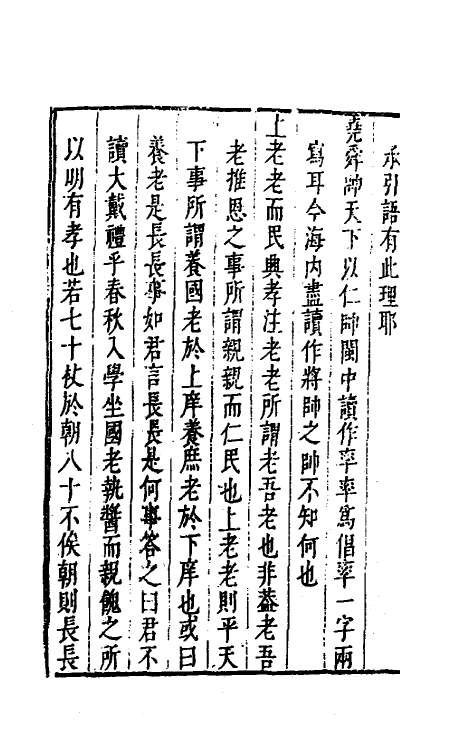 承引語有此理耶
堯舜帥天下以仁帥閩中讀作率率為倡率一字兩
寫耳今海內盡讀作將帥之帥不知何也
上老老而民興孝注老老所謂老吾老也非葢老吾
老推恩之事所謂親親而仁民也上老老則平天
下事所謂養國老於上庠養庶老於下庠也或曰
養老是長長事如君言長長是何事答之曰君不
讀大戴禮乎春秋入學坐國老執醬而親餽之所
以明有孝也若七十杖於朝八十不俟朝則長長